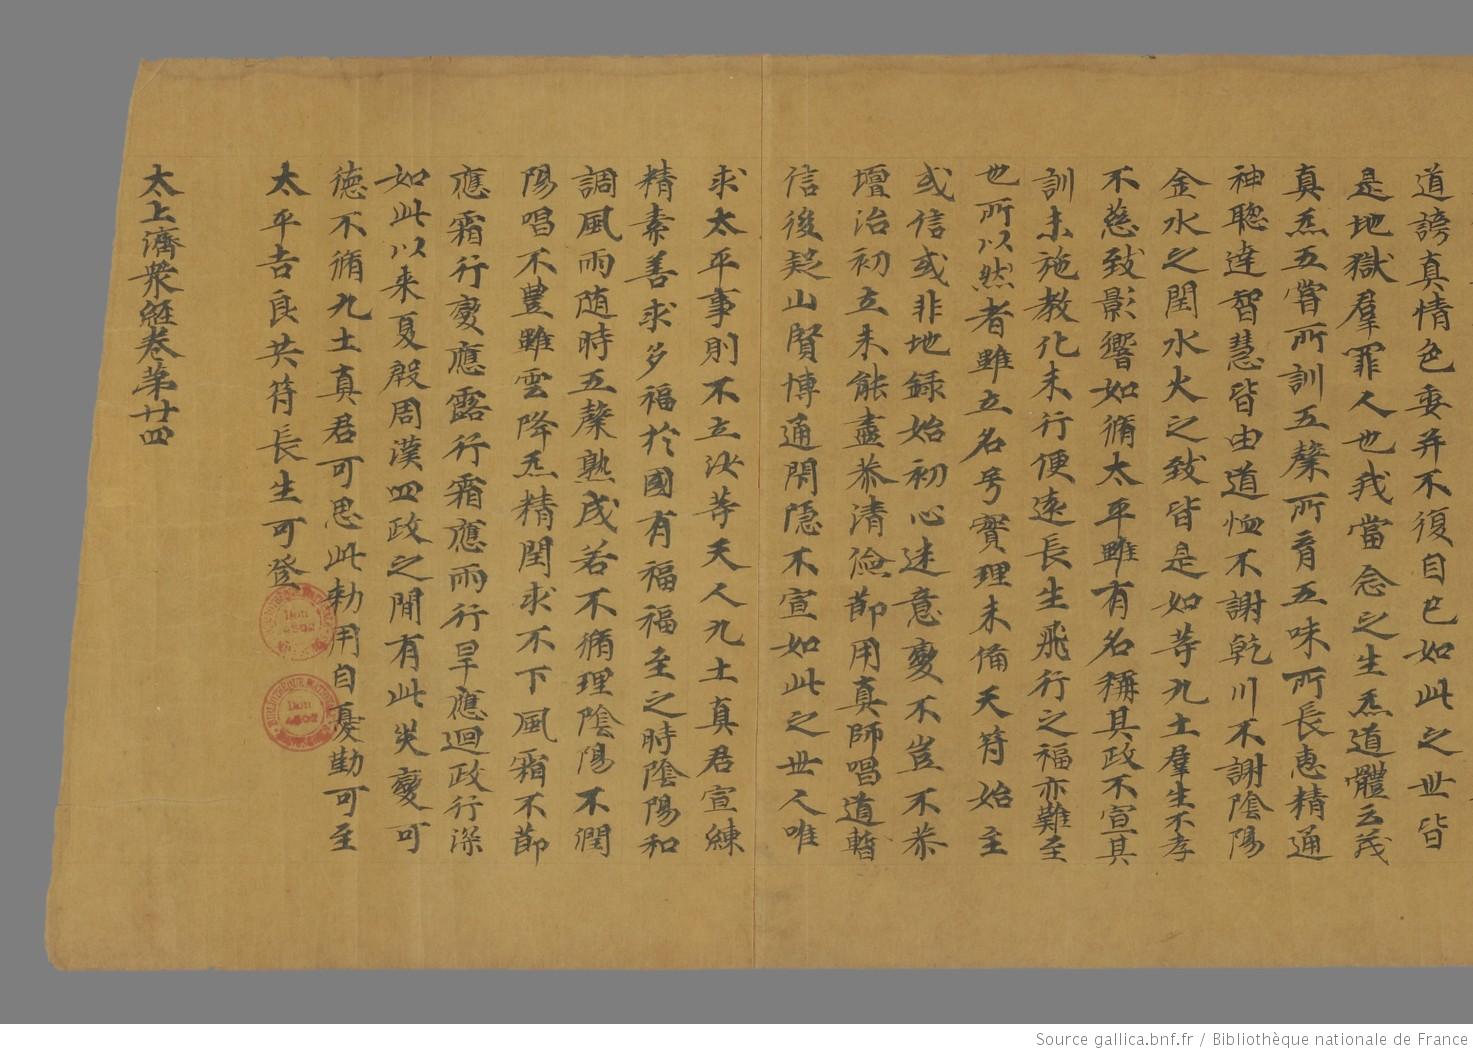 道謗真情色委弃不復自已如此之世皆
是地獄羣罪人也我當念之生炁道體云茂
真炁五嘗所訓五聲所音五味所長惠精通
神聰達智慧皆由道恤不謝乾川不謝陰陽
金水之閏水火之致皆是如等九土羣生不孝
不慈致影響如脩太平雖有名稱其政不宣其
訓未施教化未行便遠長生飛行之福亦難至
也所以然者雖立名号實理未備天符始主
或信或非地録始初心迷意變不豈不恭
壇治初立未能盡恭清儉節用真師唱道暫
信後疑山賢博通閇隱不宣如此之世人唯
求太平事則不立汝等天人九土真君宣練
精素善求多福於國有福福至之時陰陽和
調風雨随時五聲熟茂若不脩理陰陽不潤
陽唱不豐雖雲降炁精閏求不下風霜不節
應霜行變應露行霜應雨行旱應迴政行深
如此以来夏殷周漢四政之間有此災變可
德不脩九土真君可思此勑用自憂勤可至
太平吉良共符長生可登
太上濟衆經卷第廿四
Don
4502
Source gallica.bnf.fr / Bibliothèque nationale de France